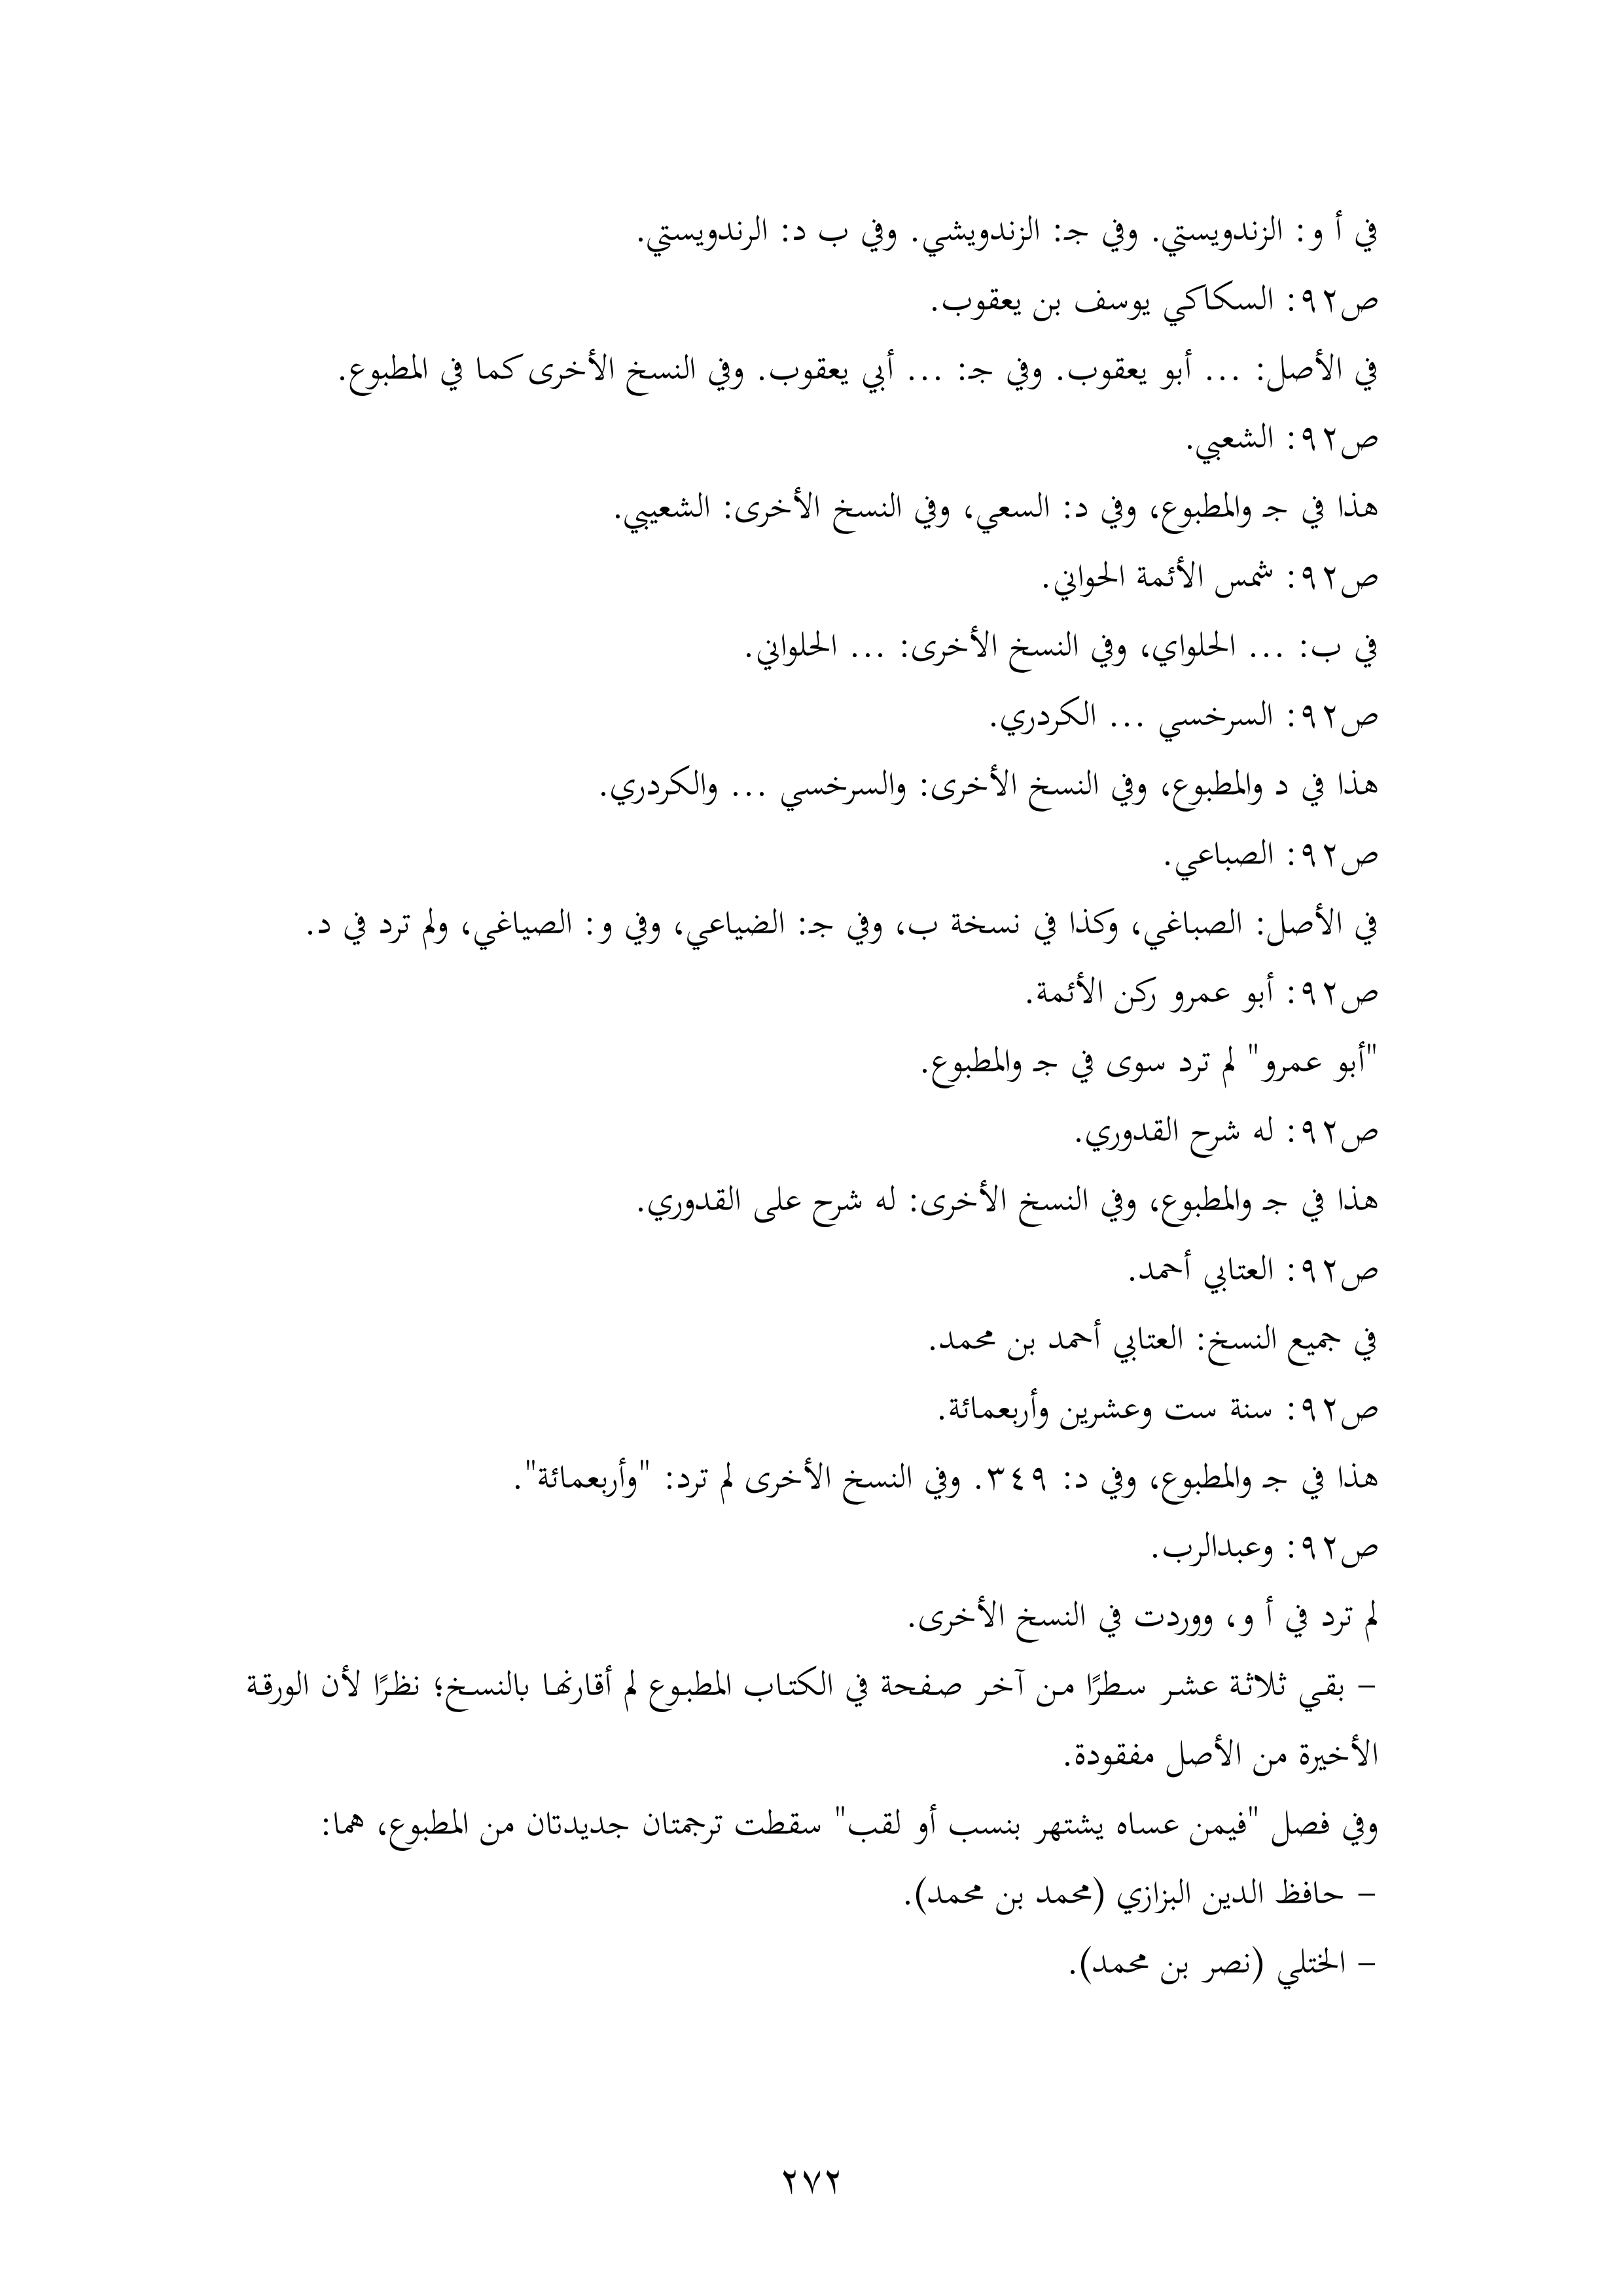 في أ و: الزندويستي. وفي جـ: الزندويشي. وفي ب د: الرندويستي.
ص٩٢: السكاكي يوسف بن يعقوب.
في الأصل: ... أبو يعقوب. وفي جـ: ... أبي يعقوب. وفي النسخ الأخرى كما في المطبوع.
ص٩٢: الشعبي.
هذا في جـ والمطبوع، وفي د: السعي، وفي النسخ الأخرى: الشعيبي.
ص٩٢: شمس الأئمة الحواني.
في ب: ... الحلواي، وفي النسخ الأخرى: ... الحلواني.
ص٩٢: السرخسي ... الكردري.
هذا في د والمطبوع، وفي النسخ الأخرى: والسرخسي ... والكردري.
ص٩٢: الصباعي.
في الأصل: الصباغي، وكذا في نسخة ب، وفي جـ: الضياعي، وفي و: الصياغي، ولم ترد في د.
ص٩٢: أبو عمرو ركن الأئمة.
"أبو عمرو" لم ترد سوى في جـ والمطبوع.
ص٩٢: له شرح القدوري.
هذا في جـ والمطبوع، وفي النسخ الأخرى: له شرح على القدوري.
ص٩٢: العتابي أحمد.
في جميع النسخ: العتابي أحمد بن محمد.
ص٩٢: سنة ست وعشرين وأربعمائة.
هذا في جـ والمطبوع، وفي د: ٣٤٩. وفي النسخ الأخرى لم ترد: "وأربعمائة".
ص٩٢: وعبدالرب.
لم ترد في أ و، ووردت في النسخ الأخرى.
– بقي ثلاثة عشر سطرًا من آخر صفحة في الكتاب المطبوع لم أقارنها بالنسخ؛ نظرًا لأن الورقة
الأخيرة من الأصل مفقودة.
وفي فصل "فيمن عساه يشتهر بنسب أو لقب" سقطت ترجمتان جديدتان من المطبوع، هما:
– حافظ الدين البزازي (محمد بن محمد).
– الختلي (نصر بن محمد).
٢٧٢